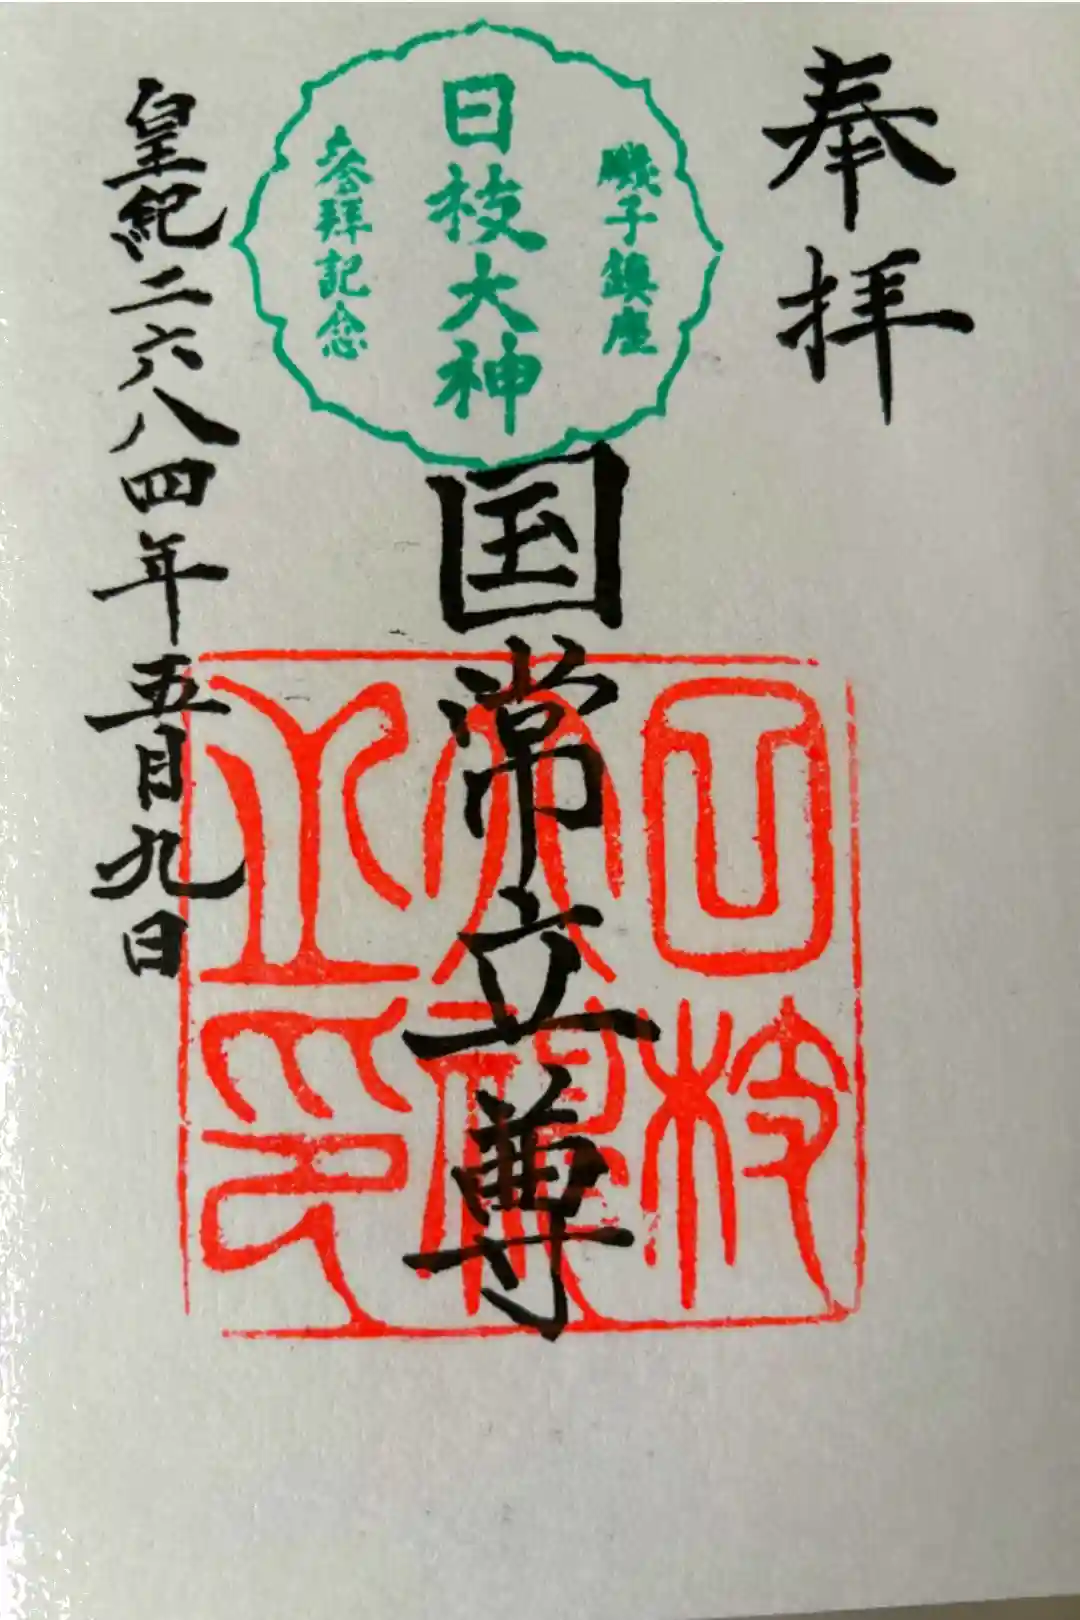 奉拝
磯子鎮座
日枝大神
参拝記念
国常立尊
日枝
大神
之印
皇紀二六八四年五月九日